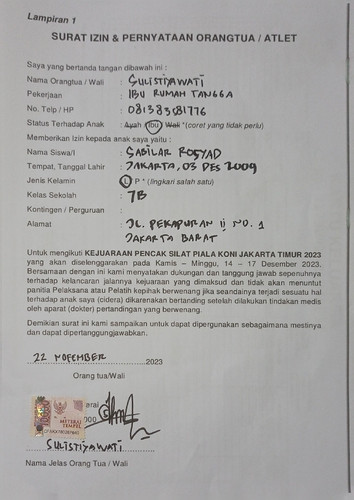 Lampiran 1
SURAT IZIN & PERNYATAAN ORANGTUA / ATLET
Saya yang bertanda tangan dibawah ini :
Nama Orangtua / Wali : SULISTIYAWATI
Pekerjaan : IBU RUMAH TANGGA
No. Telp / HP : 081383581776
Status Terhadap Anak : Ayah Ibu Wali *(coret yang tidak perlu)
Memberikan Izin kepada anak saya yaitu :
Nama Siswa/i : SABILAR ROSYAD
Tempat, Tanggal Lahir : JAKARTA, 03 DES 2009
Jenis Kelamin : L P * (lingkari salah satu)
Kelas Sekolah : 7B
Kontingen / Perguruan :
Alamat : JL. PEKAPURAN II NO. 1
JAKARTA BARAT
Untuk mengikuti KEJUARAAN PENCAK SILAT PIALA KONI JAKARTA TIMUR 2023
yang akan diselenggarakan pada Kamis – Minggu, 14 – 17 Desember 2023.
Bersamaan dengan ini kami menyatakan dukungan dan tanggung jawab sepenuhnya
terhadap kelancaran jalannya kejuaraan yang dimaksud dan tidak akan menuntut
panitia Pelaksana atau Pelatih kepihak berwenang jika seandainya terjadi sesuatu hal
terhadap anak saya (cidera) dikarenakan bertanding setelah dilakukan tindakan medis
oleh aparat (dokter) pertandingan yang berwenang.
Demikian surat ini kami sampaikan untuk dapat dipergunakan sebagaimana mestinya
dan dapat dipertanggungjawabkan.
22 NOFEMBER 2023
Orang tua/Wali
METERAI
TEMPEL
SULISTIYAWATI
Nama Jelas Orang Tua / Wali